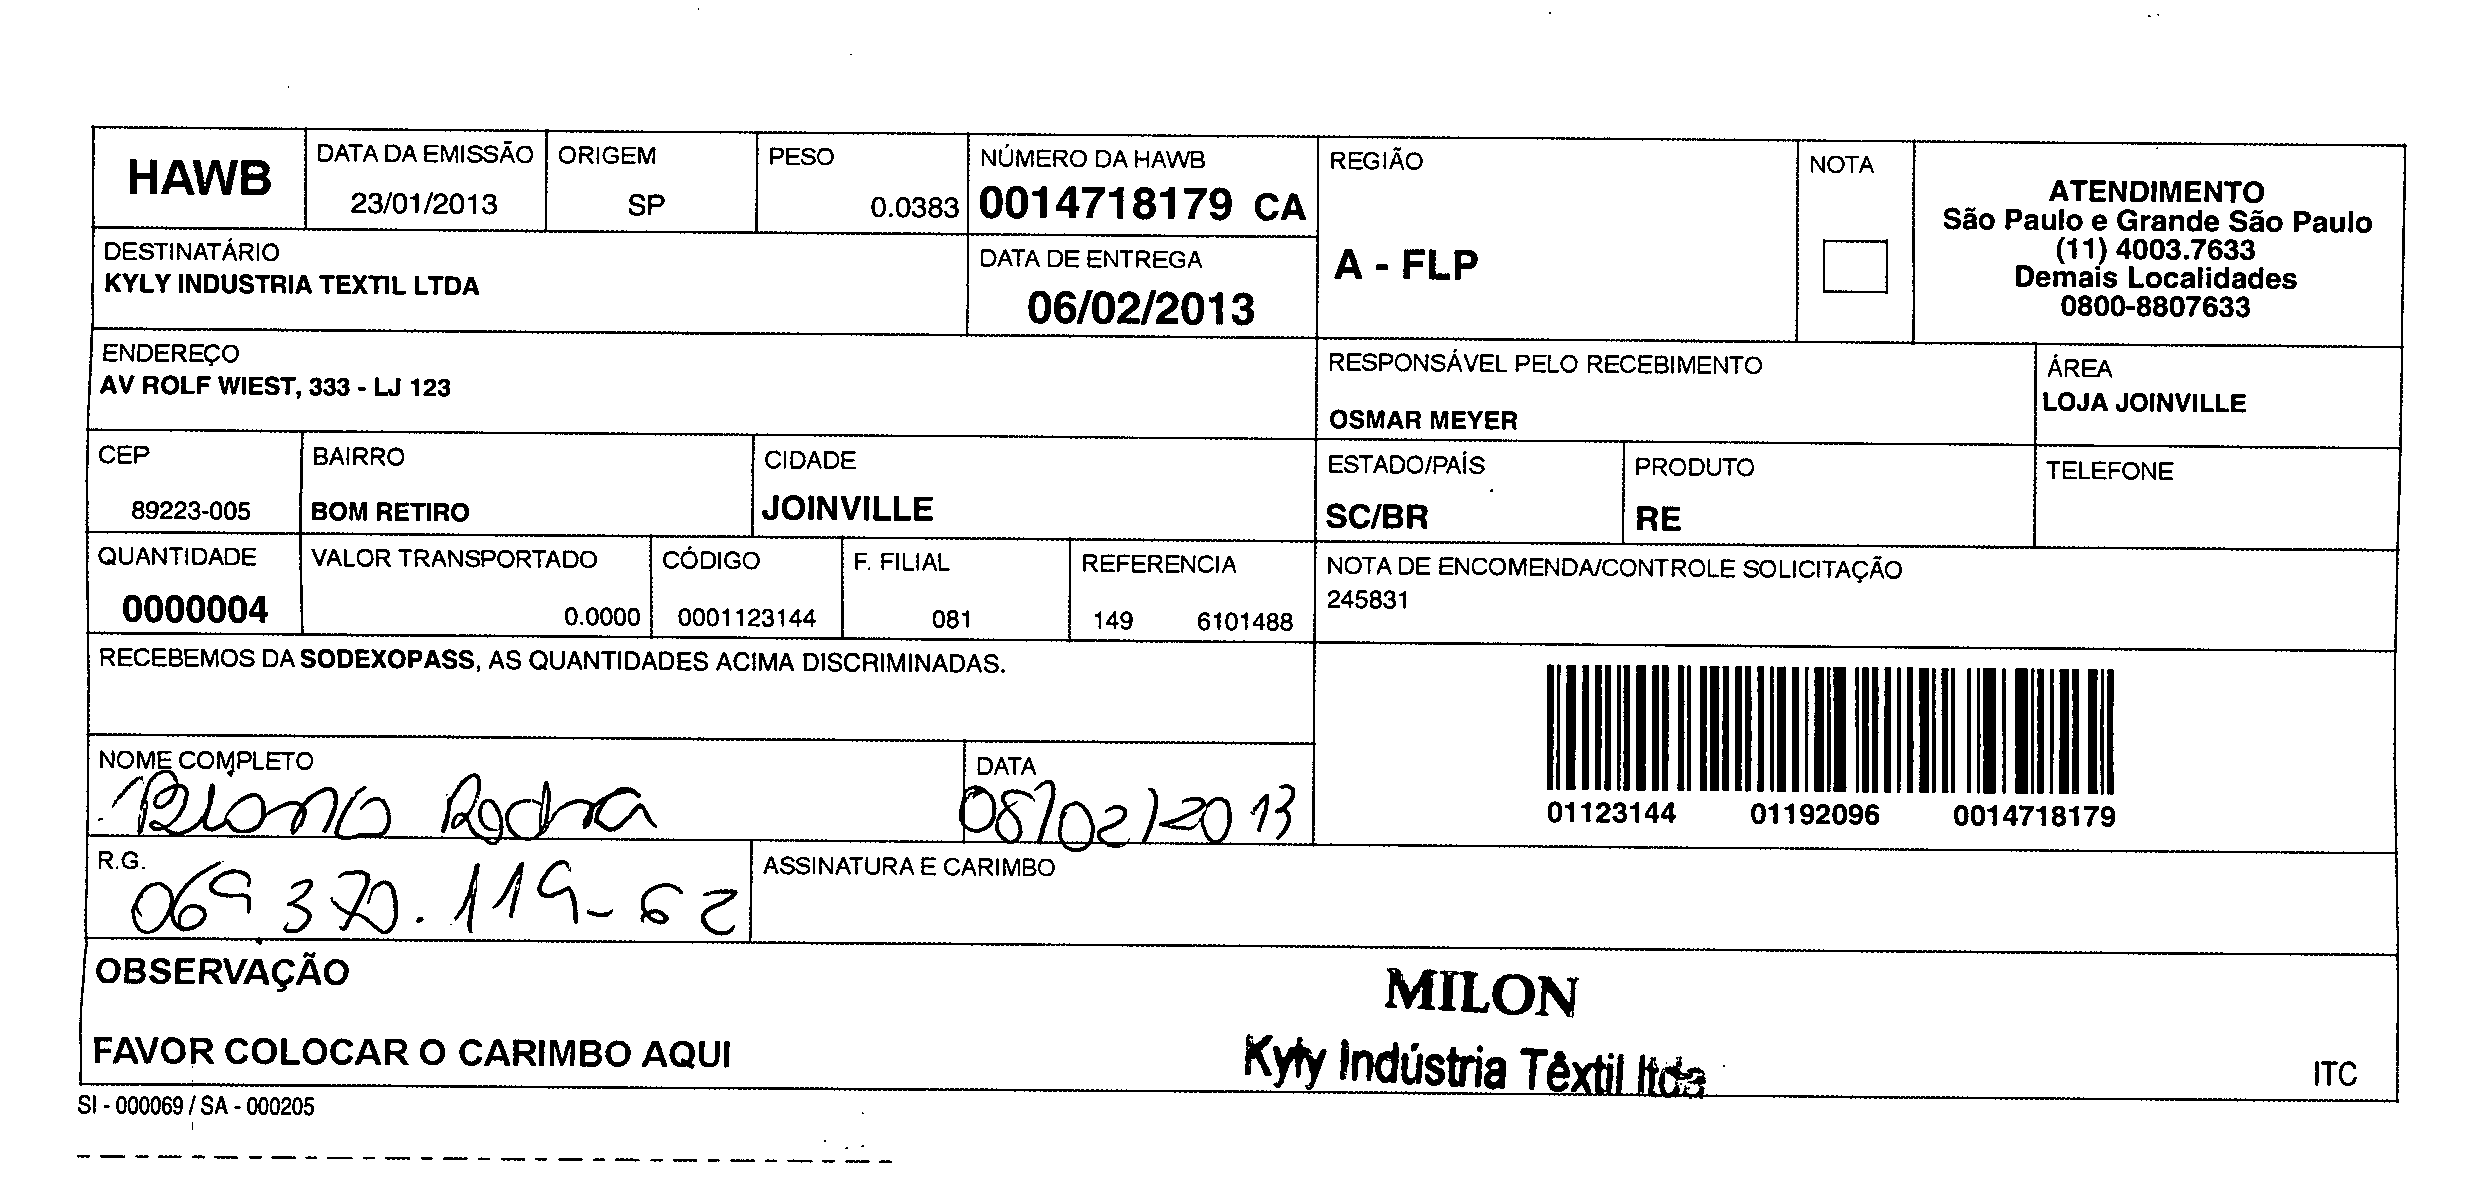 HAWB
DATA DA EMISSÃO
23/01/2013
ORIGEM
SP
PESO
0.0383
NÚMERO DA HAWB
0014718179 CA
REGIÃO
A - FLP
NOTA
ATENDIMENTO
São Paulo e Grande São Paulo
(11) 4003.7633
Demais Localidades
0800-8807633
DESTINATÁRIO
KYLY INDUSTRIA TEXTIL LTDA
DATA DE ENTREGA
06/02/2013
ENDEREÇO
AV ROLF WIEST, 333 - LJ 123
RESPONSÁVEL PELO RECEBIMENTO
OSMAR MEYER
ÁREA
LOJA JOINVILLE
CEP
89223-005
BAIRRO
BOM RETIRO
CIDADE
JOINVILLE
ESTADO/PAÍS
SC/BR
PRODUTO
RE
TELEFONE
QUANTIDADE
0000004
VALOR TRANSPORTADO
0.0000
CÓDIGO
0001123144
F. FILIAL
081
REFERENCIA
149 6101488
NOTA DE ENCOMENDA/CONTROLE SOLICITAÇÃO
245831
RECEBEMOS DA SODEXOPASS, AS QUANTIDADES ACIMA DISCRIMINADAS.
01123144 01192096 0014718179
NOME COMPLETO
Rocha
DATA
08/02/2013
R.G.
069 370.119-62
ASSINATURA E CARIMBO
OBSERVAÇÃO
FAVOR COLOCAR O CARIMBO AQUI
MILON
Kyly Indústria Têxtil ltda
ITC
SI - 000069 / SA - 000205